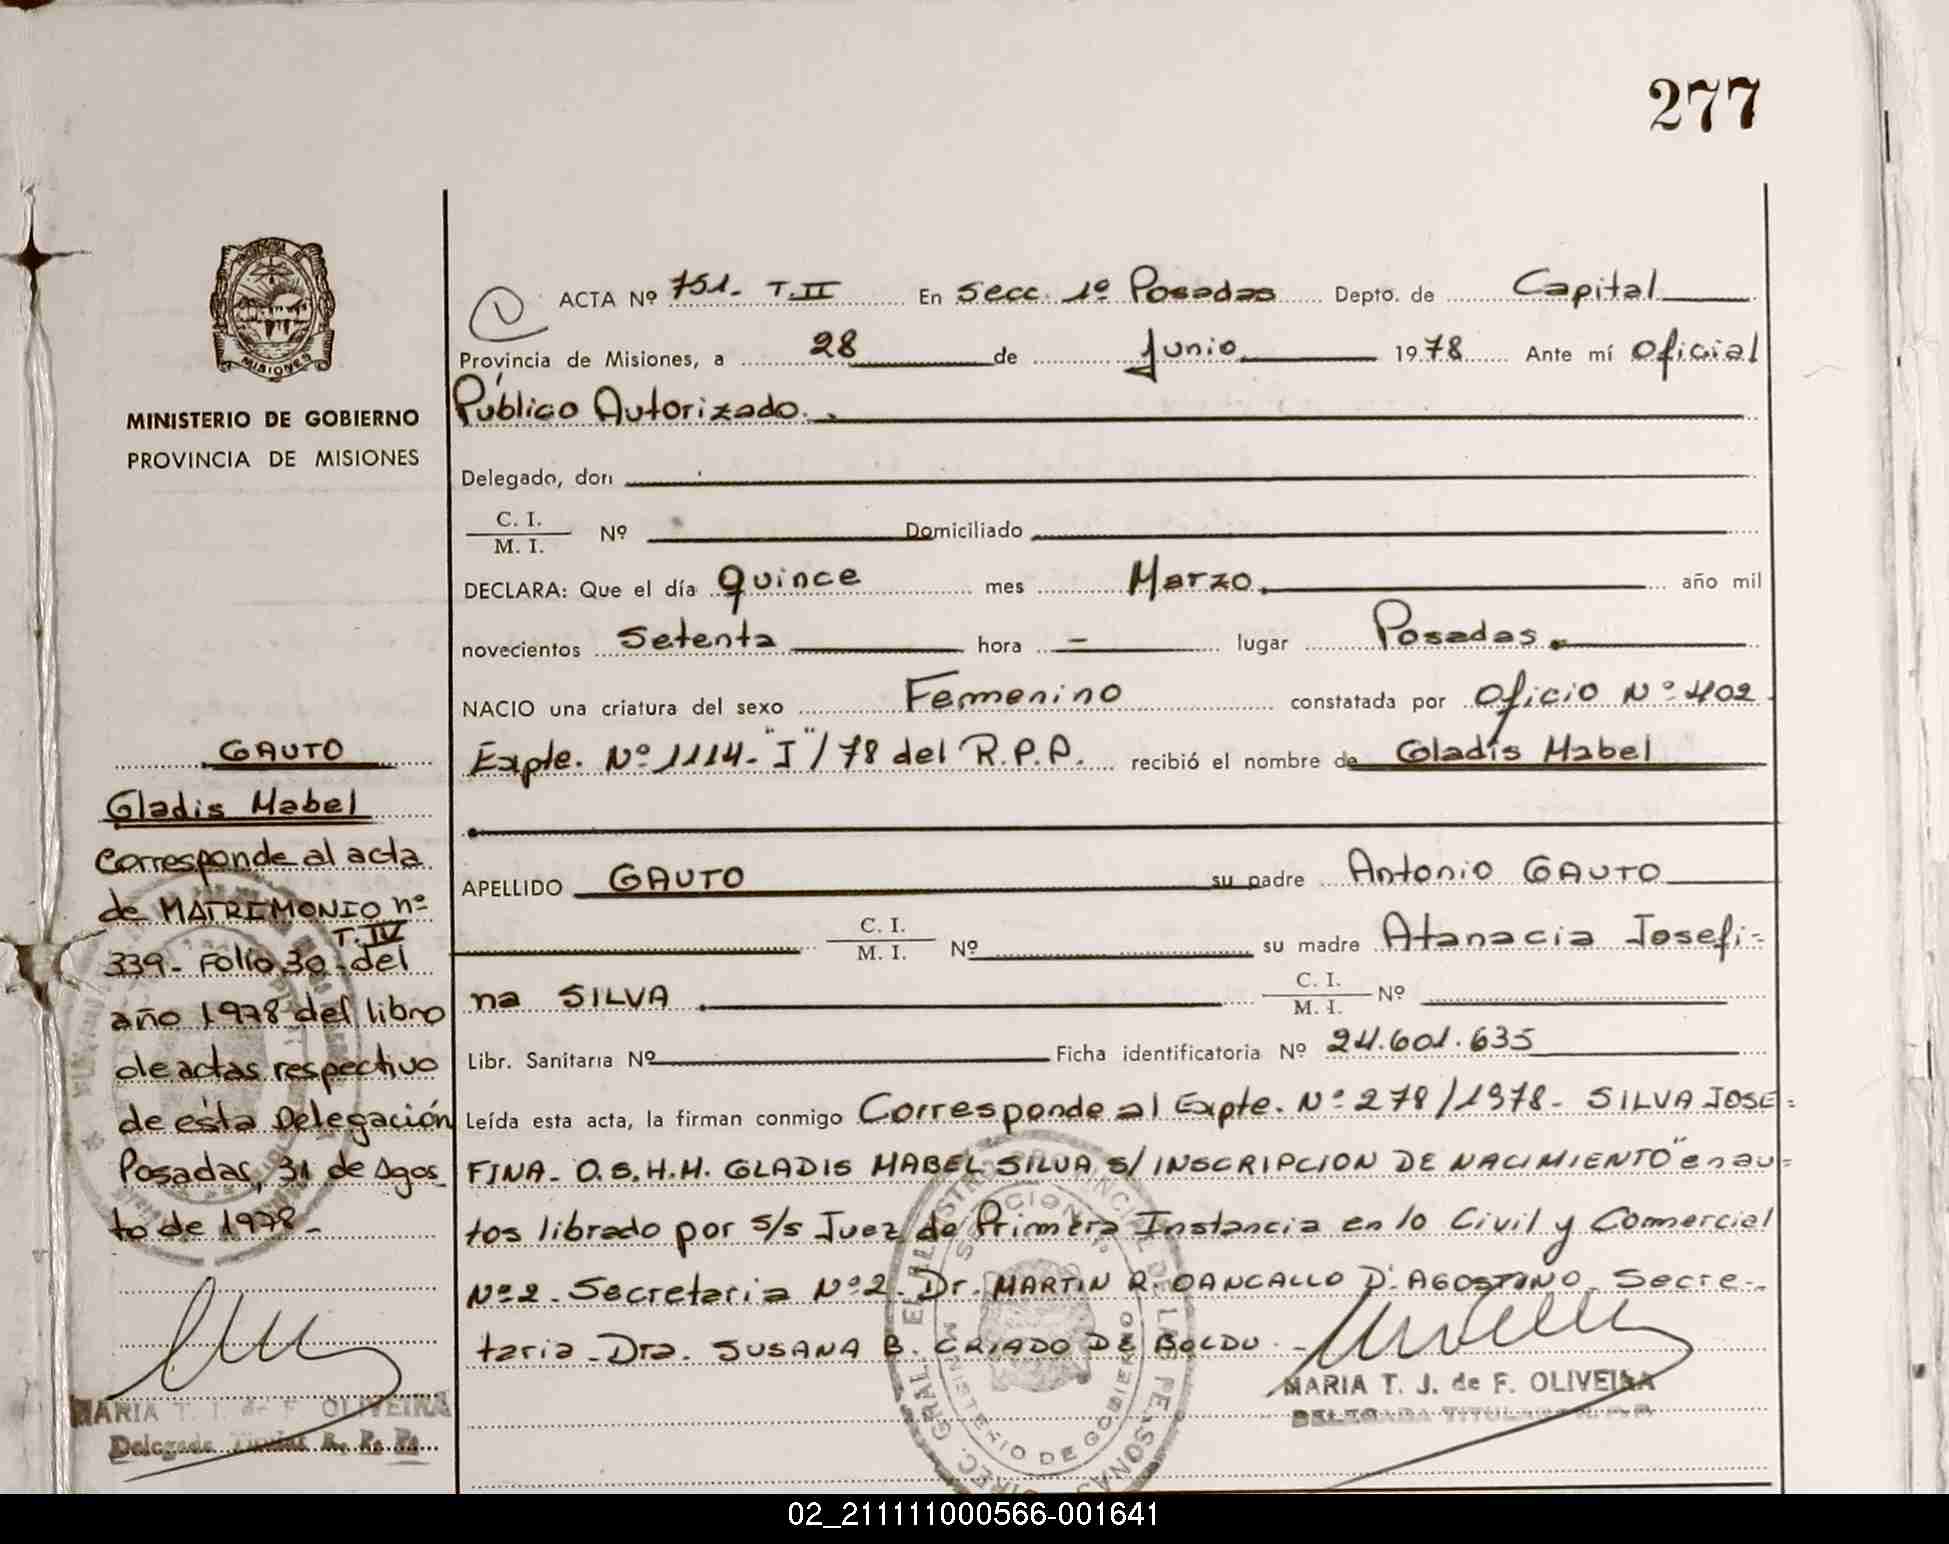 277
ACTA Nº 751- T.II En Secc. 1º Posadas Depto. de Capital
Provincia de Misiones, a 28 de Junio 1978 Ante mí Oficial
Público Autorizado.
MISIONES
MINISTERIO DE GOBIERNO
PROVINCIA DE MISIONES
Delegado, don
C. I.
M. I. Nº Domiciliado
DECLARA: Que el día quince mes Marzo año mil
novecientos Setenta hora - lugar Posadas.
NACIO una criatura del sexo Femenino constatada por Oficio Nº 402
Expte. Nº 1114-"I"/78 del R.P.P. recibió el nombre de Gladis Mabel
APELLIDO GAUTO su padre Antonio GAUTO
C. I.
M. I. Nº su madre Atanacia Josefi-
na SILVA C. I.
M. I. Nº
Libr. Sanitaria Nº Ficha identificatoria Nº 24.601.635
Leída esta acta, la firman conmigo Corresponde al Expte. Nº 278/1978- SILVA JOSE=
FINA- O.S.H.H. GLADIS MABEL SILVA S/INSCRIPCION DE NACIMIENTO" en au=
tos librado por S/S Juez de Primera Instancia en lo Civil y Comercial
Nº2- Secretaria Nº2- Dr. MARTIN R. OANCALLO D'AGOSTINO- Secre-
taria- Dra. SUSANA B. CRIADO DE BOLDU.-
MARIA T. J. de F. OLIVEIRA
DELEGADA TITULAR
GAUTO
Gladis Mabel
Corresponde al acta
de MATREMONIO nº
T.IV
339- Folio 30- del
año 1978 del libro
de actas respectivo
de esta Delegación
Posadas, 31 de Agos
to de 1978-
MARIA T. J. de F. OLIVEIRA
Delegada Titular R. P. P.
MINISTERIO DE GOBIERNO
02_211111000566-001641